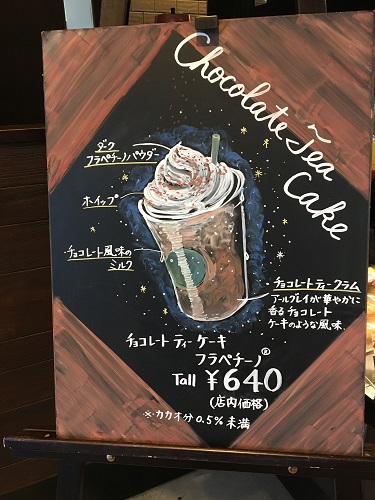 Chocolate Tea
Cake
ダーク
フラペチーノパウダー
ホイップ
チョコレート風味の
ミルク
チョコレートティークラム
アールグレイが華やかに
香るチョコレート
ケーキのような風味、
チョコレート ティー ケーキ
フラペチーノ®
Tall ¥640
(店内価格)
※カカオ分0.5%未満